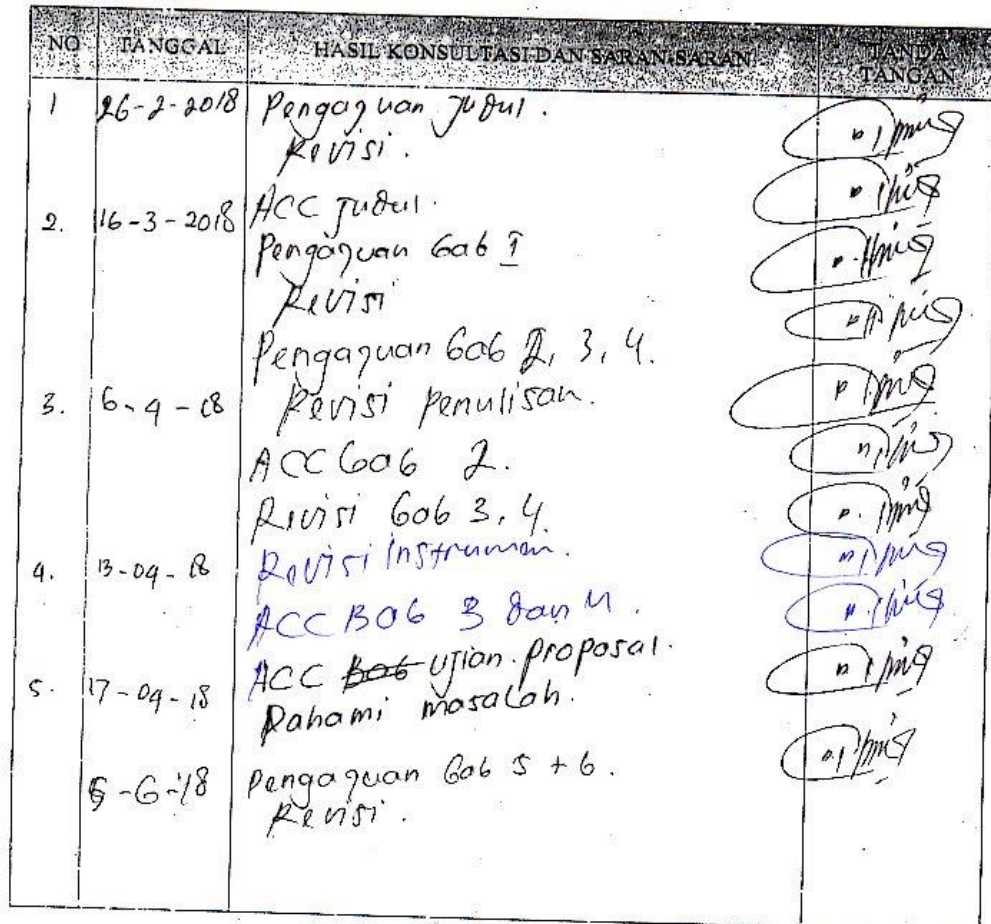 NO TANGGAL HASIL KONSULTASI DAN SARAN-SARAN TANDA TANGAN
1 26-2-2018 Pengajuan judul.
Revisi.
2. 16-3-2018 ACC judul.
Pengajuan bab I
Revisi
Pengajuan bab 2, 3, 4.
3. 6-4-18 Revisi penulisan.
ACC bab 2.
Revisi bab 3, 4.
4. 13-04-18 Revisi instrumen.
ACC BAb 3 dan 4.
5. 17-04-18 ACC Bab ujian proposal.
Pahami masalah.
5-6-18 Pengajuan bab 5 + 6.
Revisi.